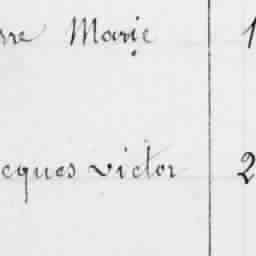 rre Marie 1
cques victor 2